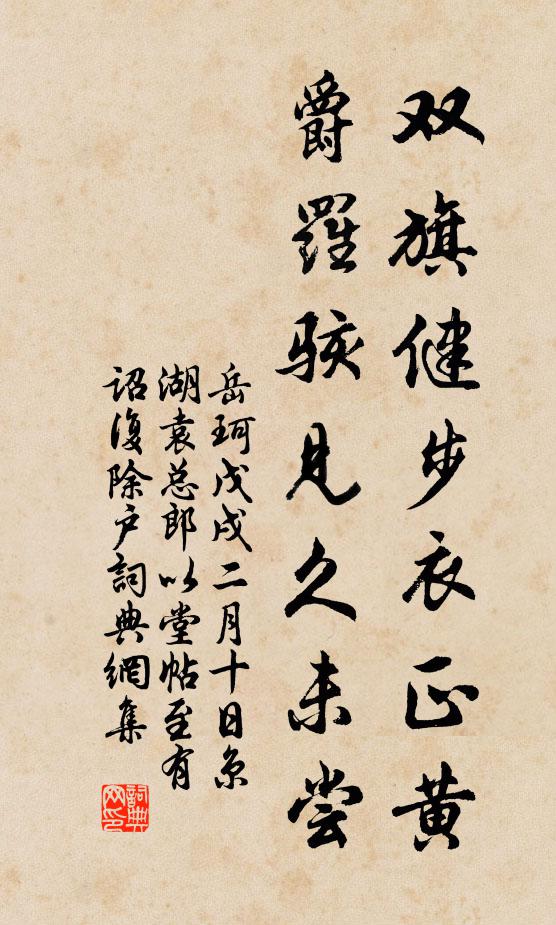 双旗健步衣正黄
爵羅駭見久未尝
岳珂戊戌二月十日京
湖袁总郎以堂帖至有
詔復除户詞典網集
詞典网印